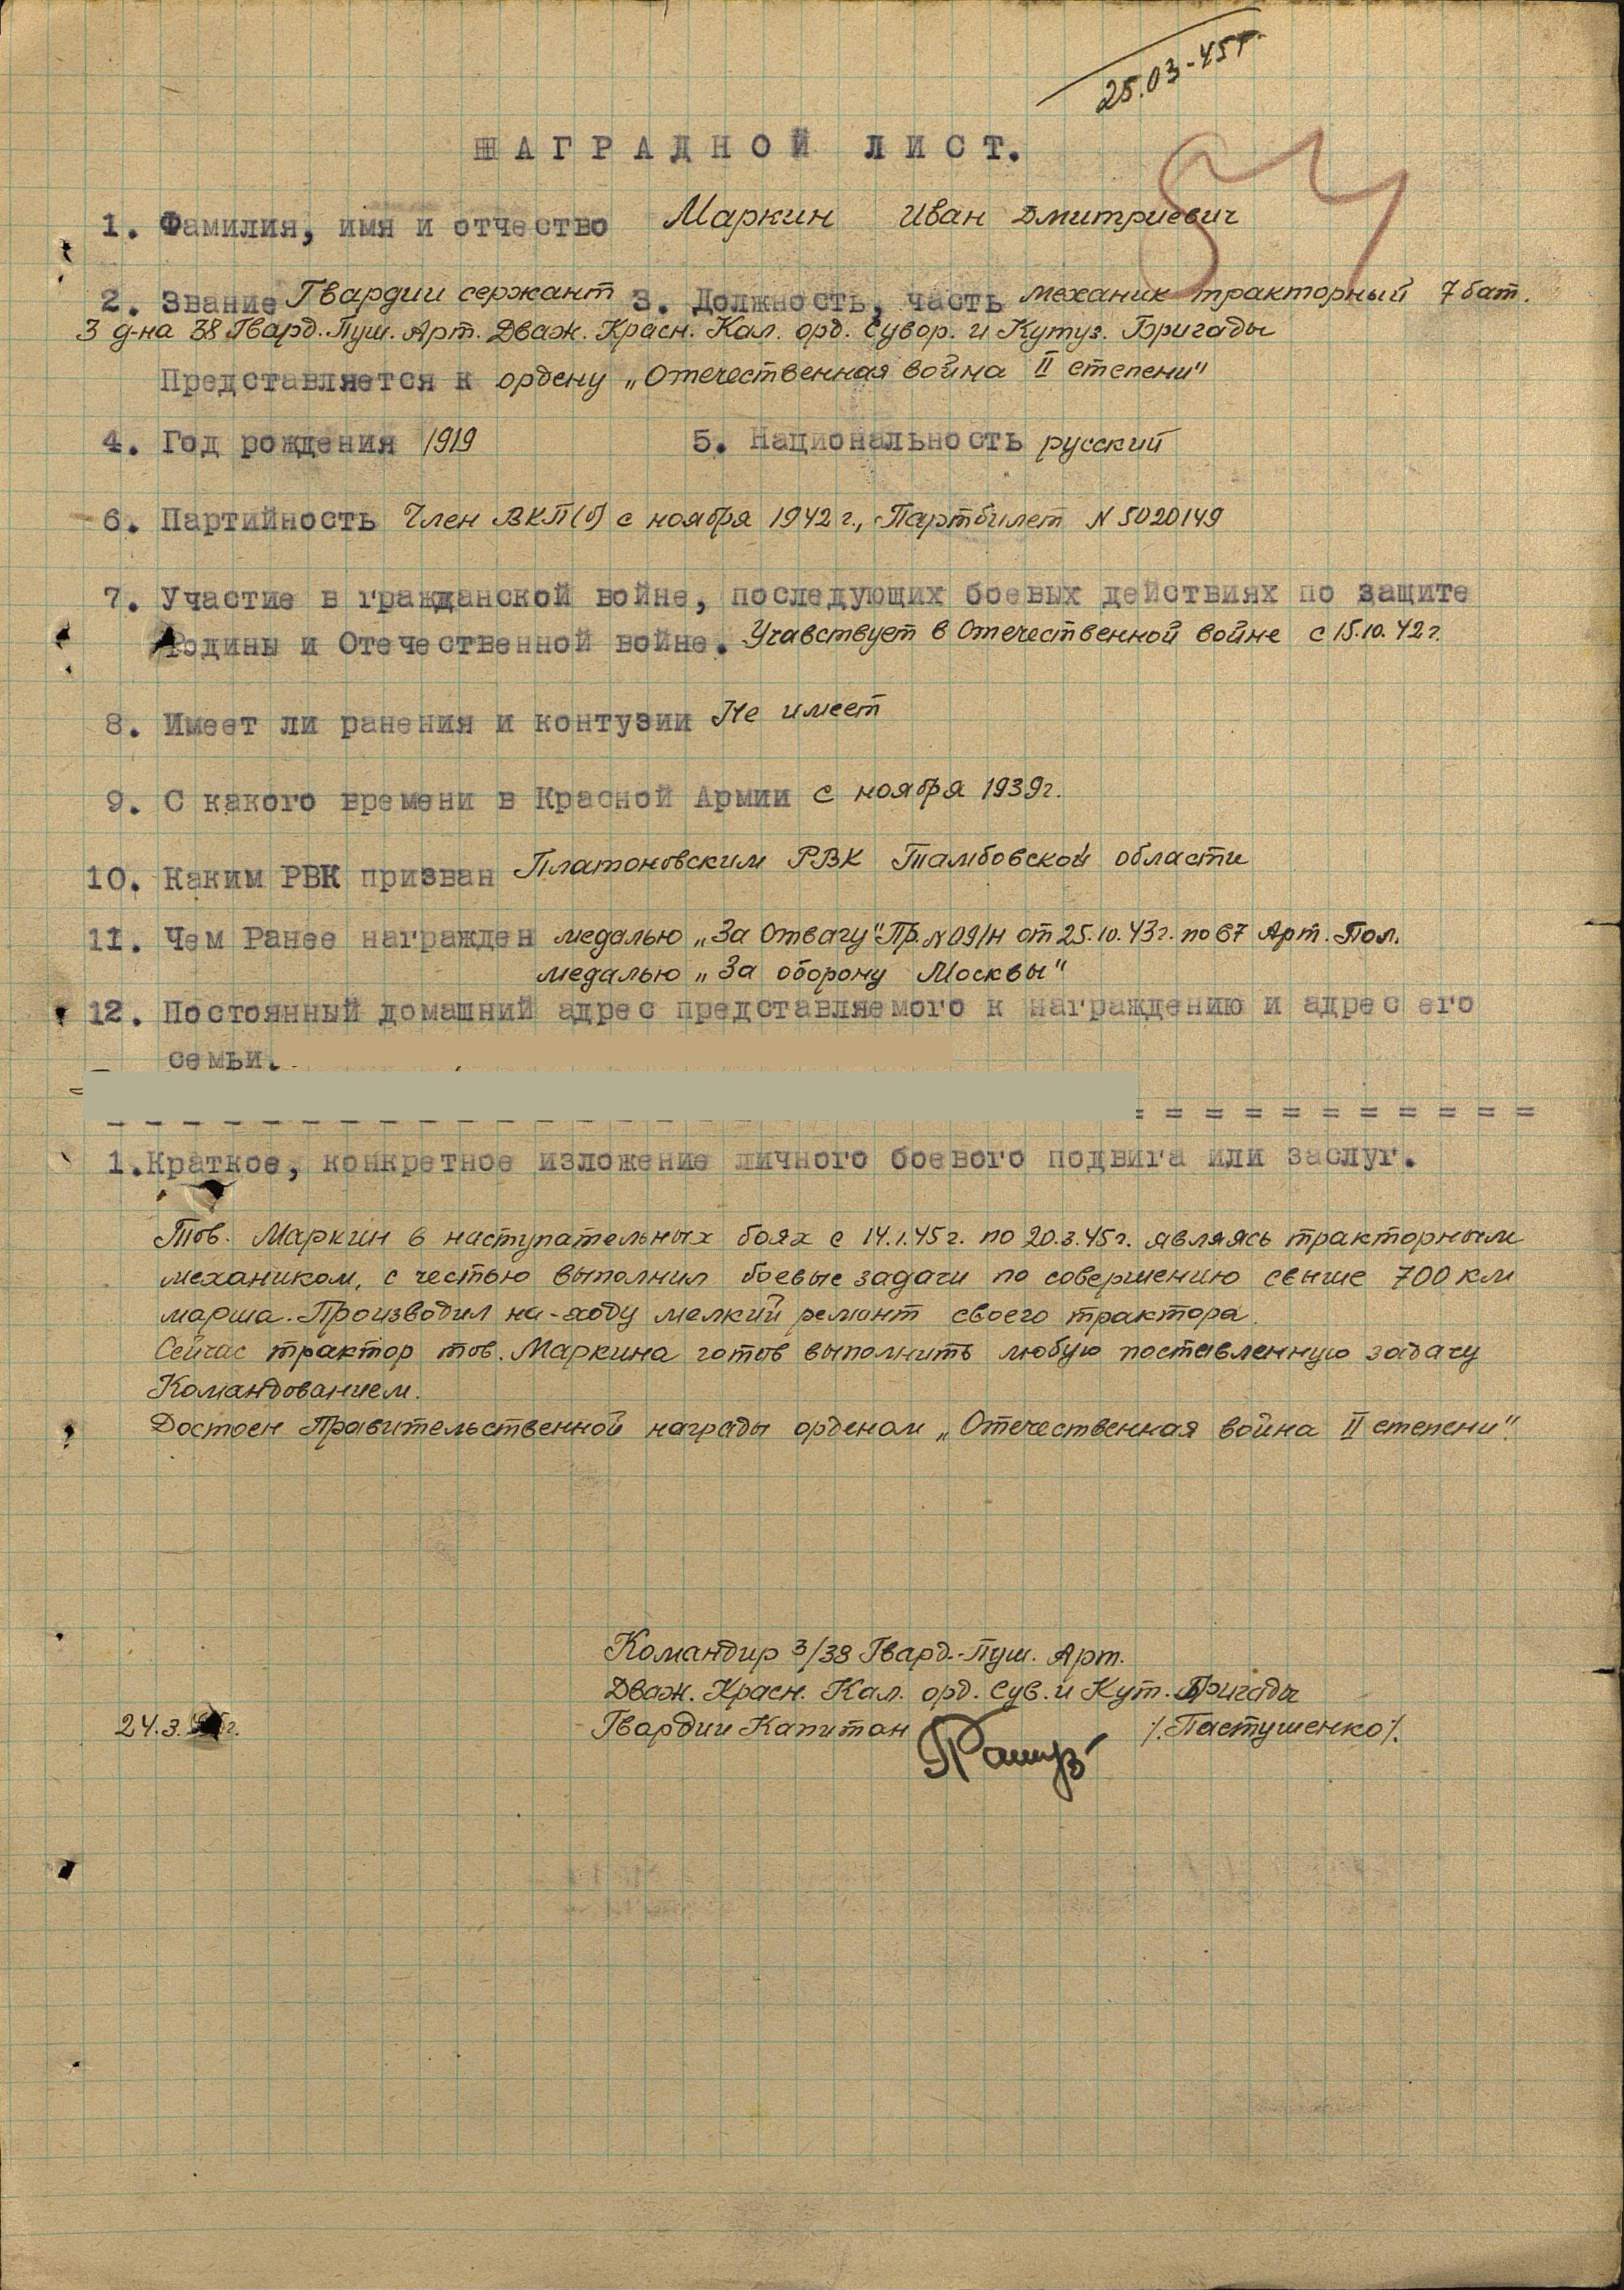 25.03-45г.
НАГРАДНОЙ ЛИСТ.
1. Фамилия, имя и отчество Маркин Иван Дмитриевич
2. Звание Гвардии сержант 3. Должность, часть механик тракторный 7 бат.
3 д-на 38 Гвард. Пуш. Арт. Дваж. Красн. Кал. орд. Сувор. и Кутуз. Бригады
Представляется к ордену „Отечественная война II степени"
4. Год рождения 1919 5. Национальность русский
6. Партийность Член ВКП(б) с ноября 1942 г., Партбилет N 5020149
7. Участие в гражданской войне, последующих боевых действиях по защите
Родины и Отечественной войне. Учавствует в Отечественной войне с 15.10.42 г.
8. Имеет ли ранения и контузии Не имеет
9. С какого времени в Красной Армии с ноября 1939 г.
10. Каким РВК призван Платоновским РВК Тамбовской области
11. Чем Ранее награжден медалью „За Отвагу" Пр. N 09/Н от 25.10.43 г. по 67 Арт. Пол.
медалью „За оборону Москвы"
12. Постоянный домашний адрес представляемого к награждению и адрес его
семьи.
1. Краткое, конкретное изложение личного боевого подвига или заслуг.
Тов. Маркин в наступательных боях с 14.1.45 г. по 20.3.45 г. являясь тракторным
механиком, с честью выполнил боевые задачи по совершению свыше 700 км
марша. Производил на-ходу мелкий ремонт своего трактора.
Сейчас трактор тов. Маркина готов выполнить любую поставленную задачу
Командованием.
Достоен Правительственной награды орденом „Отечественная война II степени".
Командир 3/38 Гвард. Пуш. Арт.
Дваж. Красн. Кал. орд. Сув. и Кут. Бригады
24.3. г. Гвардии Капитан /. Пастушенко /.